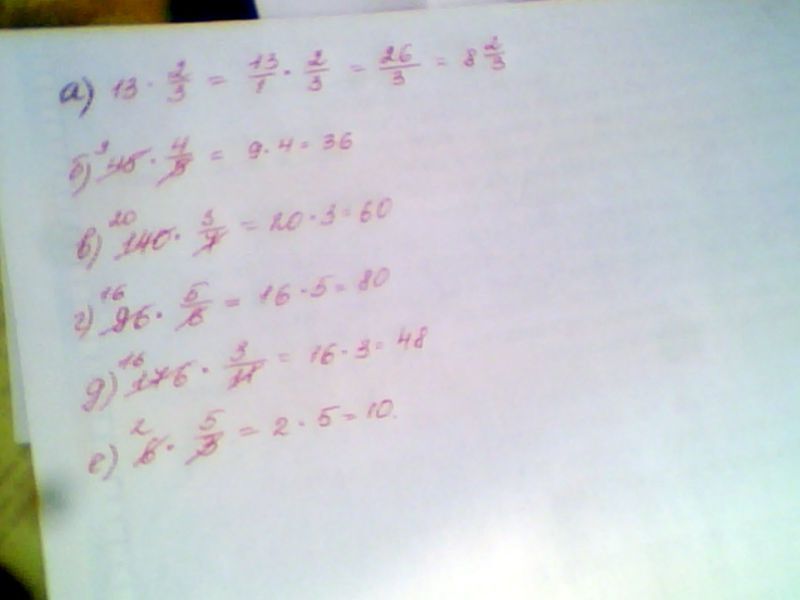 а) 13 · 2/3 = 13/1 · 2/3 = 26/3 = 8 2/3
б) 9 45 · 4/5 = 9 · 4 = 36
в) 20 140 · 3/7 = 20 · 3 = 60
г) 16 96 · 5/6 = 16 · 5 = 80
д) 16 176 · 3/11 = 16 · 3 = 48
е) 2 6 · 5/3 = 2 · 5 = 10.